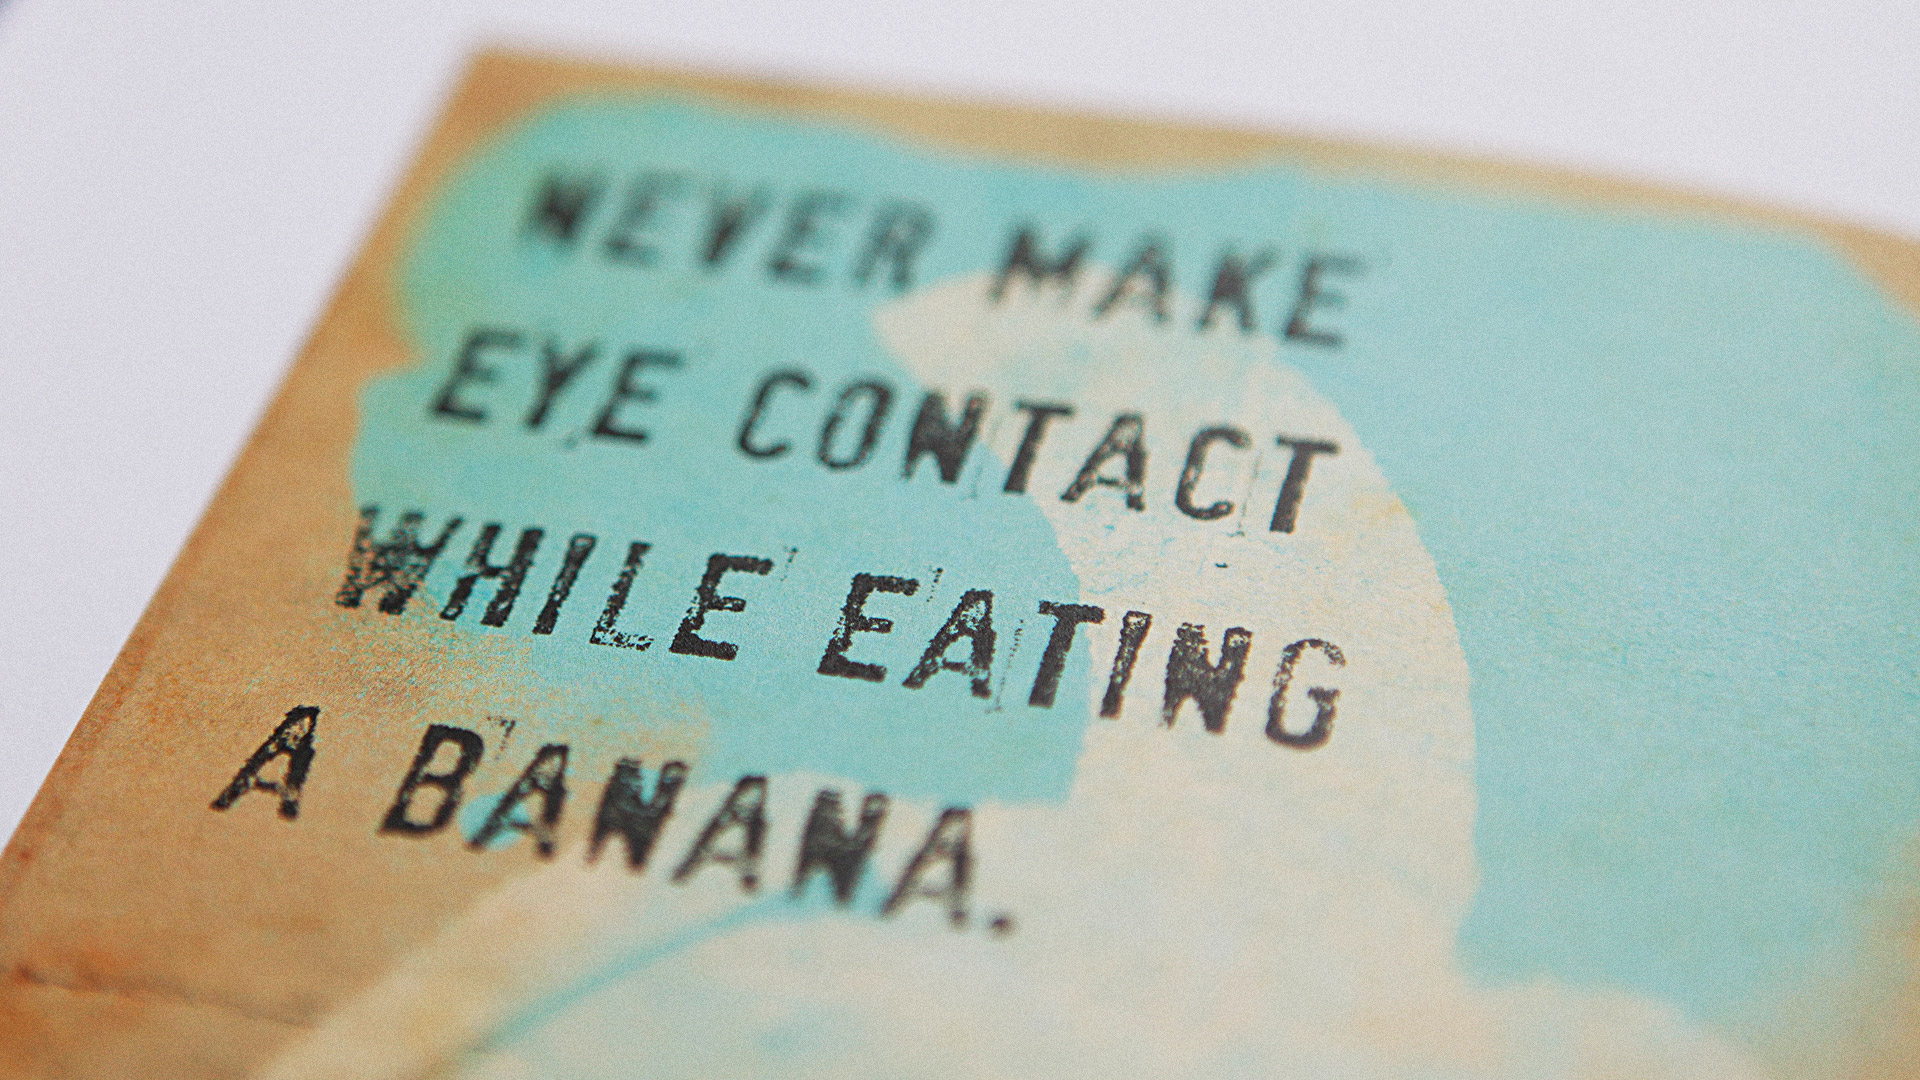 NEVER MAKE
EYE CONTACT
WHILE EATING
A BANANA.